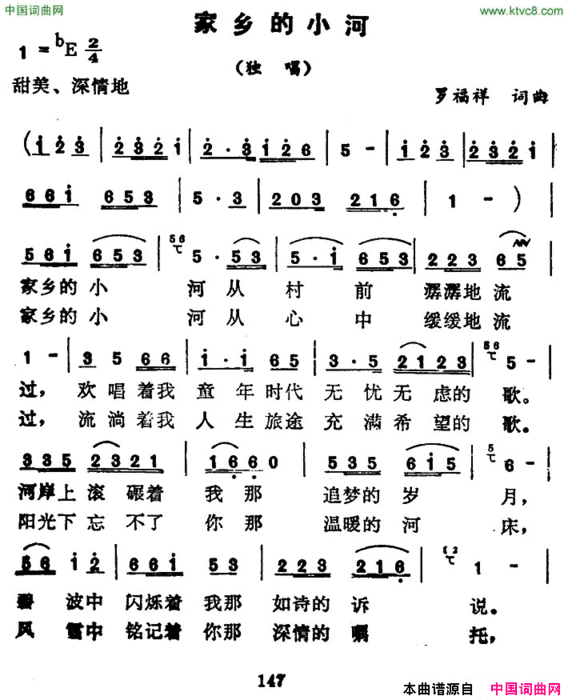 中国词曲网
www.ktvc8.com
家乡的小河
1=bE 2/4
(独唱)
甜美、深情地
罗福祥 词曲
(1 2 3 | 2 3 2 1 | 2·3 1 1 2 6 | 5 - | 1 2 3 2 3 2 1 |
6 6 1 6 5 3 | 5·3 | 2 0 3 2 1 6 | 1 - ) |
5 6 1 6 5 3 | 56 5·5 3 | 5·1 6 5 3 | 2 2 3 6 5 |
家乡的小 河从 村 前 潺潺地流
家乡的小 河从 心 中 缓缓地流
1 - | 3 5 6 6 | 1·1 6 5 | 3·5 2 1 2 3 | 56 5 - |
过, 欢唱着我 童年时代 无忧无虑的 歌。
过, 流淌着我 人生旅途 充满希望的 歌。
3 3 5 2 3 2 1 | 1 6 6 0 | 5 3 5 6 1 5 | 5 6 - |
河岸上滚碾着 我那 追梦的岁 月,
阳光下忘不了 你那 温暖的河 床,
5 6 1 2 | 6 6 1 5 3 | 2 2 3 2 1 6 | 52 1 - |
碧波中 闪烁着我那 如诗的诉 说。
风雪中 铭记着你那 深情的嘱 托,
147
本曲谱源自 中国词曲网